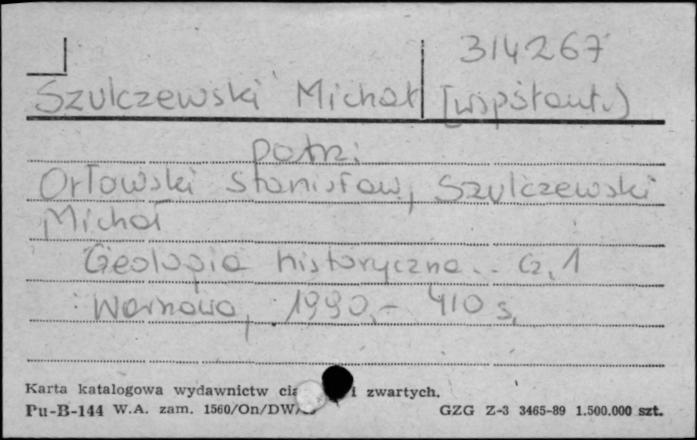 314267
Szulczewski Michał [współaut.)
patrz:
Orłowski Stanisław, Szulczewski
Michał
Geologia historyczna.. Cz. 1
Warszawa, 1990.- 410 s.
Karta katalogowa wydawnictw i zwartych.
Pu-B-144 W.A. zam. 1560/On/DW/ GZG Z-3 3465-89 1.500.000 szt.